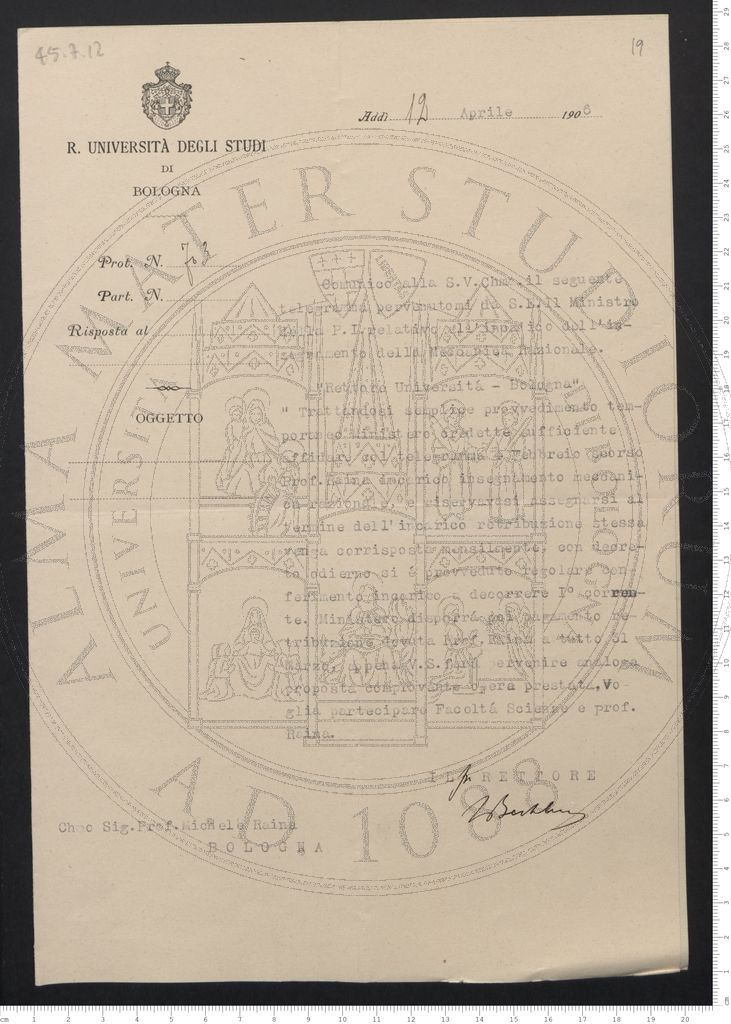 45.7.12
19
Addì 12 Aprile 1906
R. UNIVERSITÀ DEGLI STUDI
DI
BOLOGNA
Prot. N. 703
Part. N.
Risposta al
OGGETTO
Comunico alla S.V.Chma.il seguente
telegramma pervenutomi da S.E.Il Ministro
della P.I.relativo all'incarico dell'in-
segnamento della Meccanica Razionale.
"Rettore Universitá - Bologna"
" Trattandosi semplice provvedimento tem-
poraneo Ministero credette sufficiente
affidare col telegramma Febbraio scorso
Prof.Raina incarico insegnamento meccani-
ca razionale, e riservavasi assegnarsi al
termine dell'incarico retribuzione stessa
venga corrisposta mensilmente, con decre-
to odierno si é provveduto regolare con
ferimento incarico a decorrere I° corren-
te. Ministero disporrá poi pagamento re-
tribuzione dovuta Prof.Raina a tutto 31
marzo, appena V.S.fará pervenire analoga
proposta comprovante opera prestata.Vo-
glia partecipare Facoltá Scienze e prof.
Raina.
IL RETTORE
Chmo Sig.Prof.Michele Raina
BOLOGNA
ALMA MATER STUDIORUM
A.D. 1088